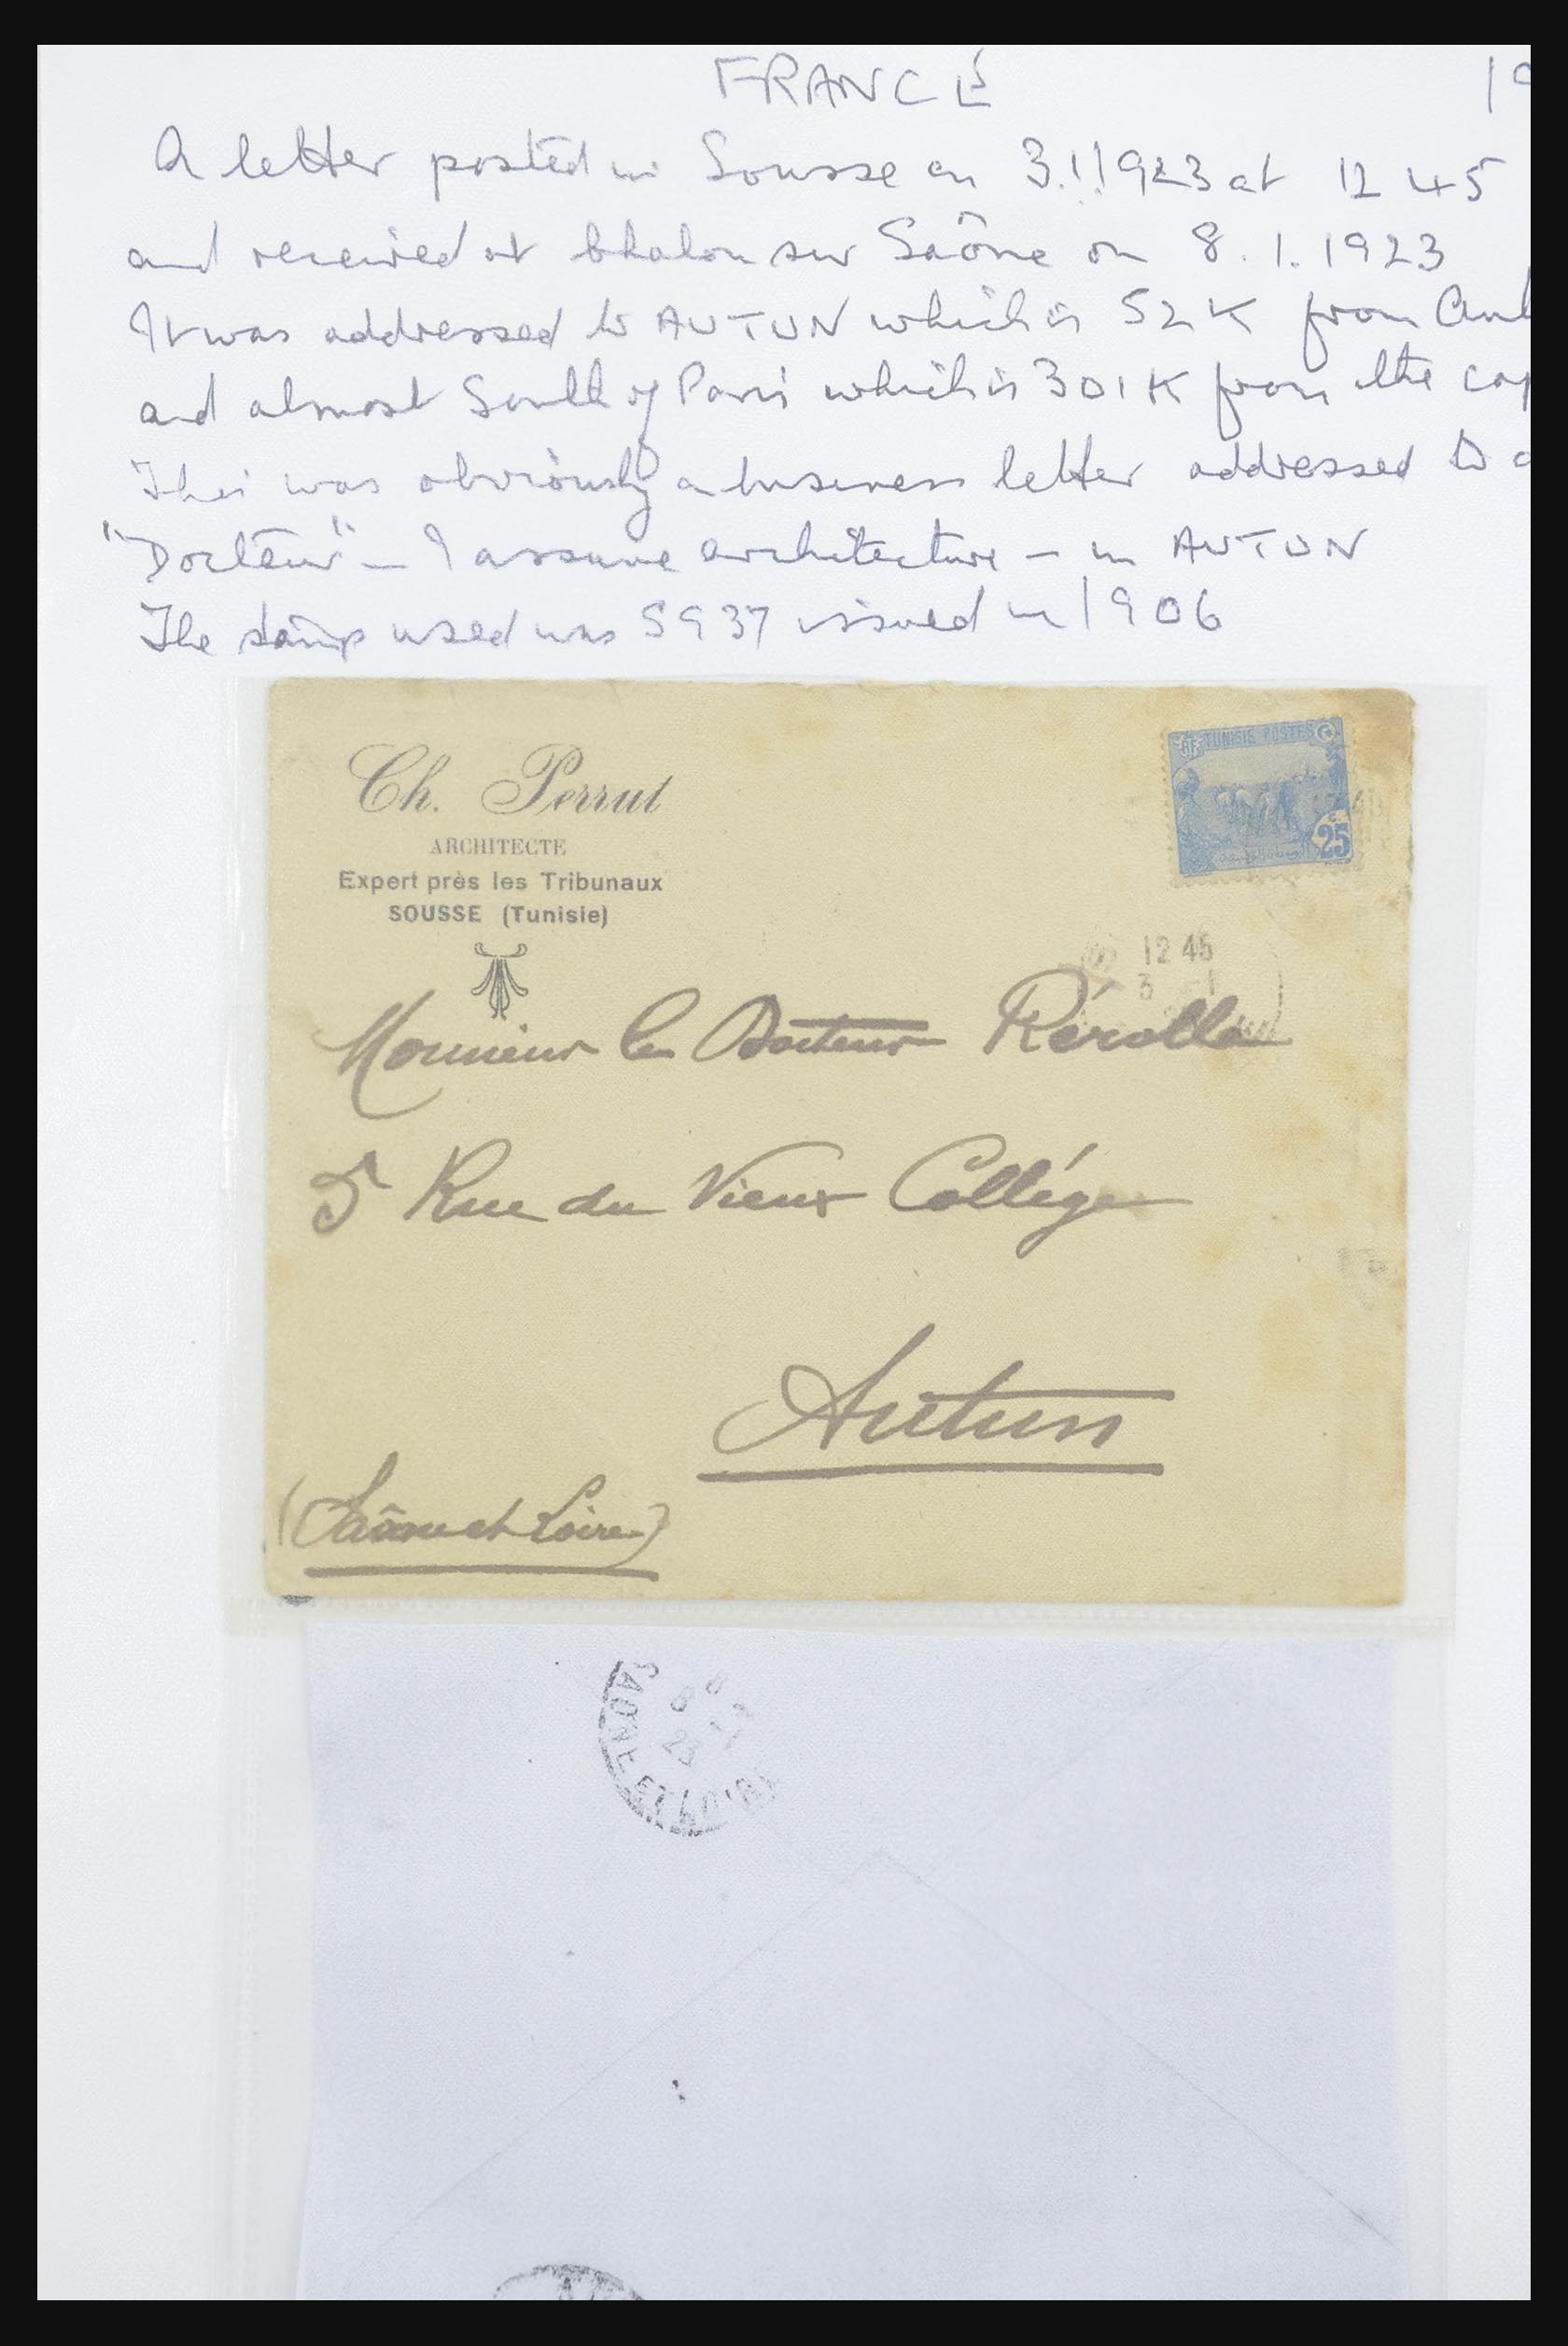 FRANCE 19
A letter posted in Sousse on 3.1.1923 at 12 45
and received at Chalon sur Saône on 8.1.1923
It was addressed to AUTUN which is 52K from
and almost South of Paris which is 301K from the cap
This was obviously a business letter addressed to a
"Docteur" – I assume architecture – in AUTUN
The stamp used was SG37 issued in 1906
RF TUNISIE POSTES
25
c
Ch. Perrut
ARCHITECTE
Expert près les Tribunaux
SOUSSE (Tunisie)
12 45
3 1
Monsieur le Docteur Rérolle
5 Rue du Vieux Collége
Autun
(Saône et Loire)
8
23
SAONE ET LOIRE